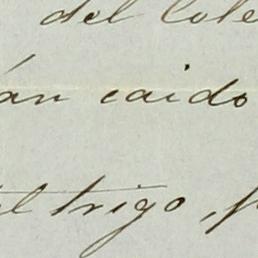 del Cole
án caido
el trigo, p